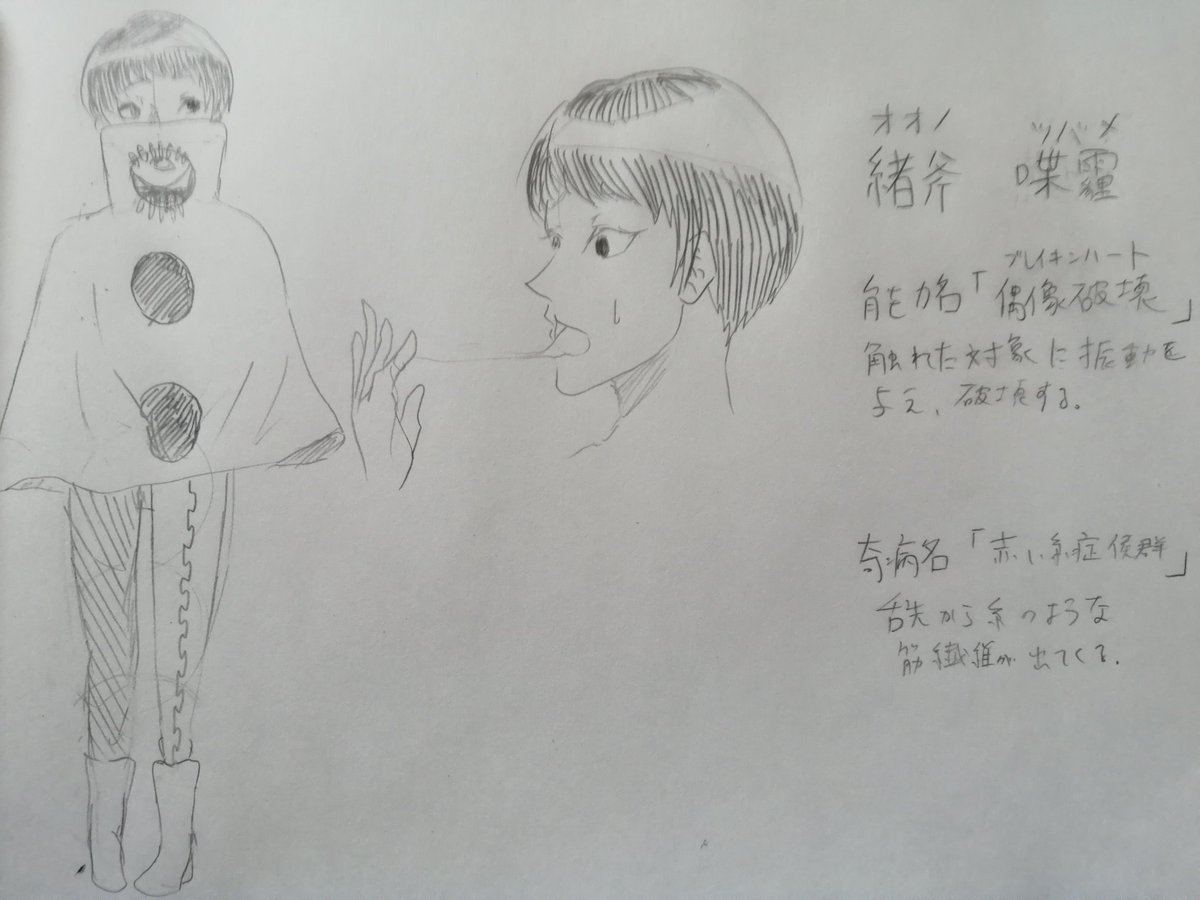 オオノ ツバメ
緒斧 喋霾
ブレイキンハート
能力名「偶像破壊」
触れた対象に振動を
与え、破壊する。
奇病名「赤い糸症候群」
舌先から糸のような
筋繊維が出てくる.